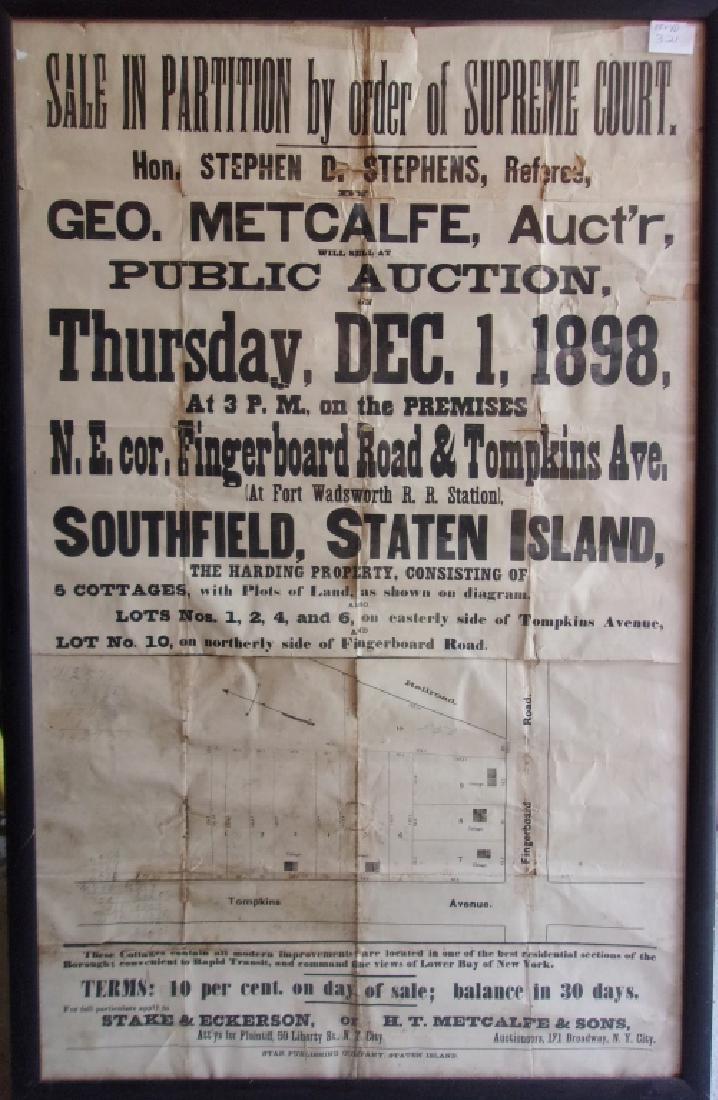 3-21
SALE IN PARTITION by order of SUPREME COURT.
Hon. STEPHEN D. STEPHENS, Referee,
BY
GEO. METCALFE, Auct'r,
WILL SELL AT
PUBLIC AUCTION,
ON
Thursday, DEC. 1, 1898,
At 3 P. M., on the PREMISES
N. E. cor. Fingerboard Road & Tompkins Ave.
(At Fort Wadsworth R. R. Station),
SOUTHFIELD, STATEN ISLAND,
THE HARDING PROPERTY, CONSISTING OF
5 COTTAGES, with Plots of Land, as shown on diagram.
ALSO
LOTS Nos. 1, 2, 4, and 6, on easterly side of Tompkins Avenue,
AND
LOT No. 10, on northerly side of Fingerboard Road.
Railroad.
Road.
Fingerboard
Cottage
8
Cottage
7
Cottage
Tompkins Avenue.
These Cottages contain all modern improvements are located in one of the best residential sections of the
Borough; convenient to Rapid Transit, and command fine views of Lower Bay of New York.
TERMS: 10 per cent. on day of sale; balance in 30 days.
For full particulars apply to
STAKE & ECKERSON, or H. T. METCALFE & SONS,
Att'ys for Plaintiff, 59 Liberty St., N. Y. City. Auctioneers, 171 Broadway, N. Y. City.
STAR PUBLISHING COMPANY, STATEN ISLAND.